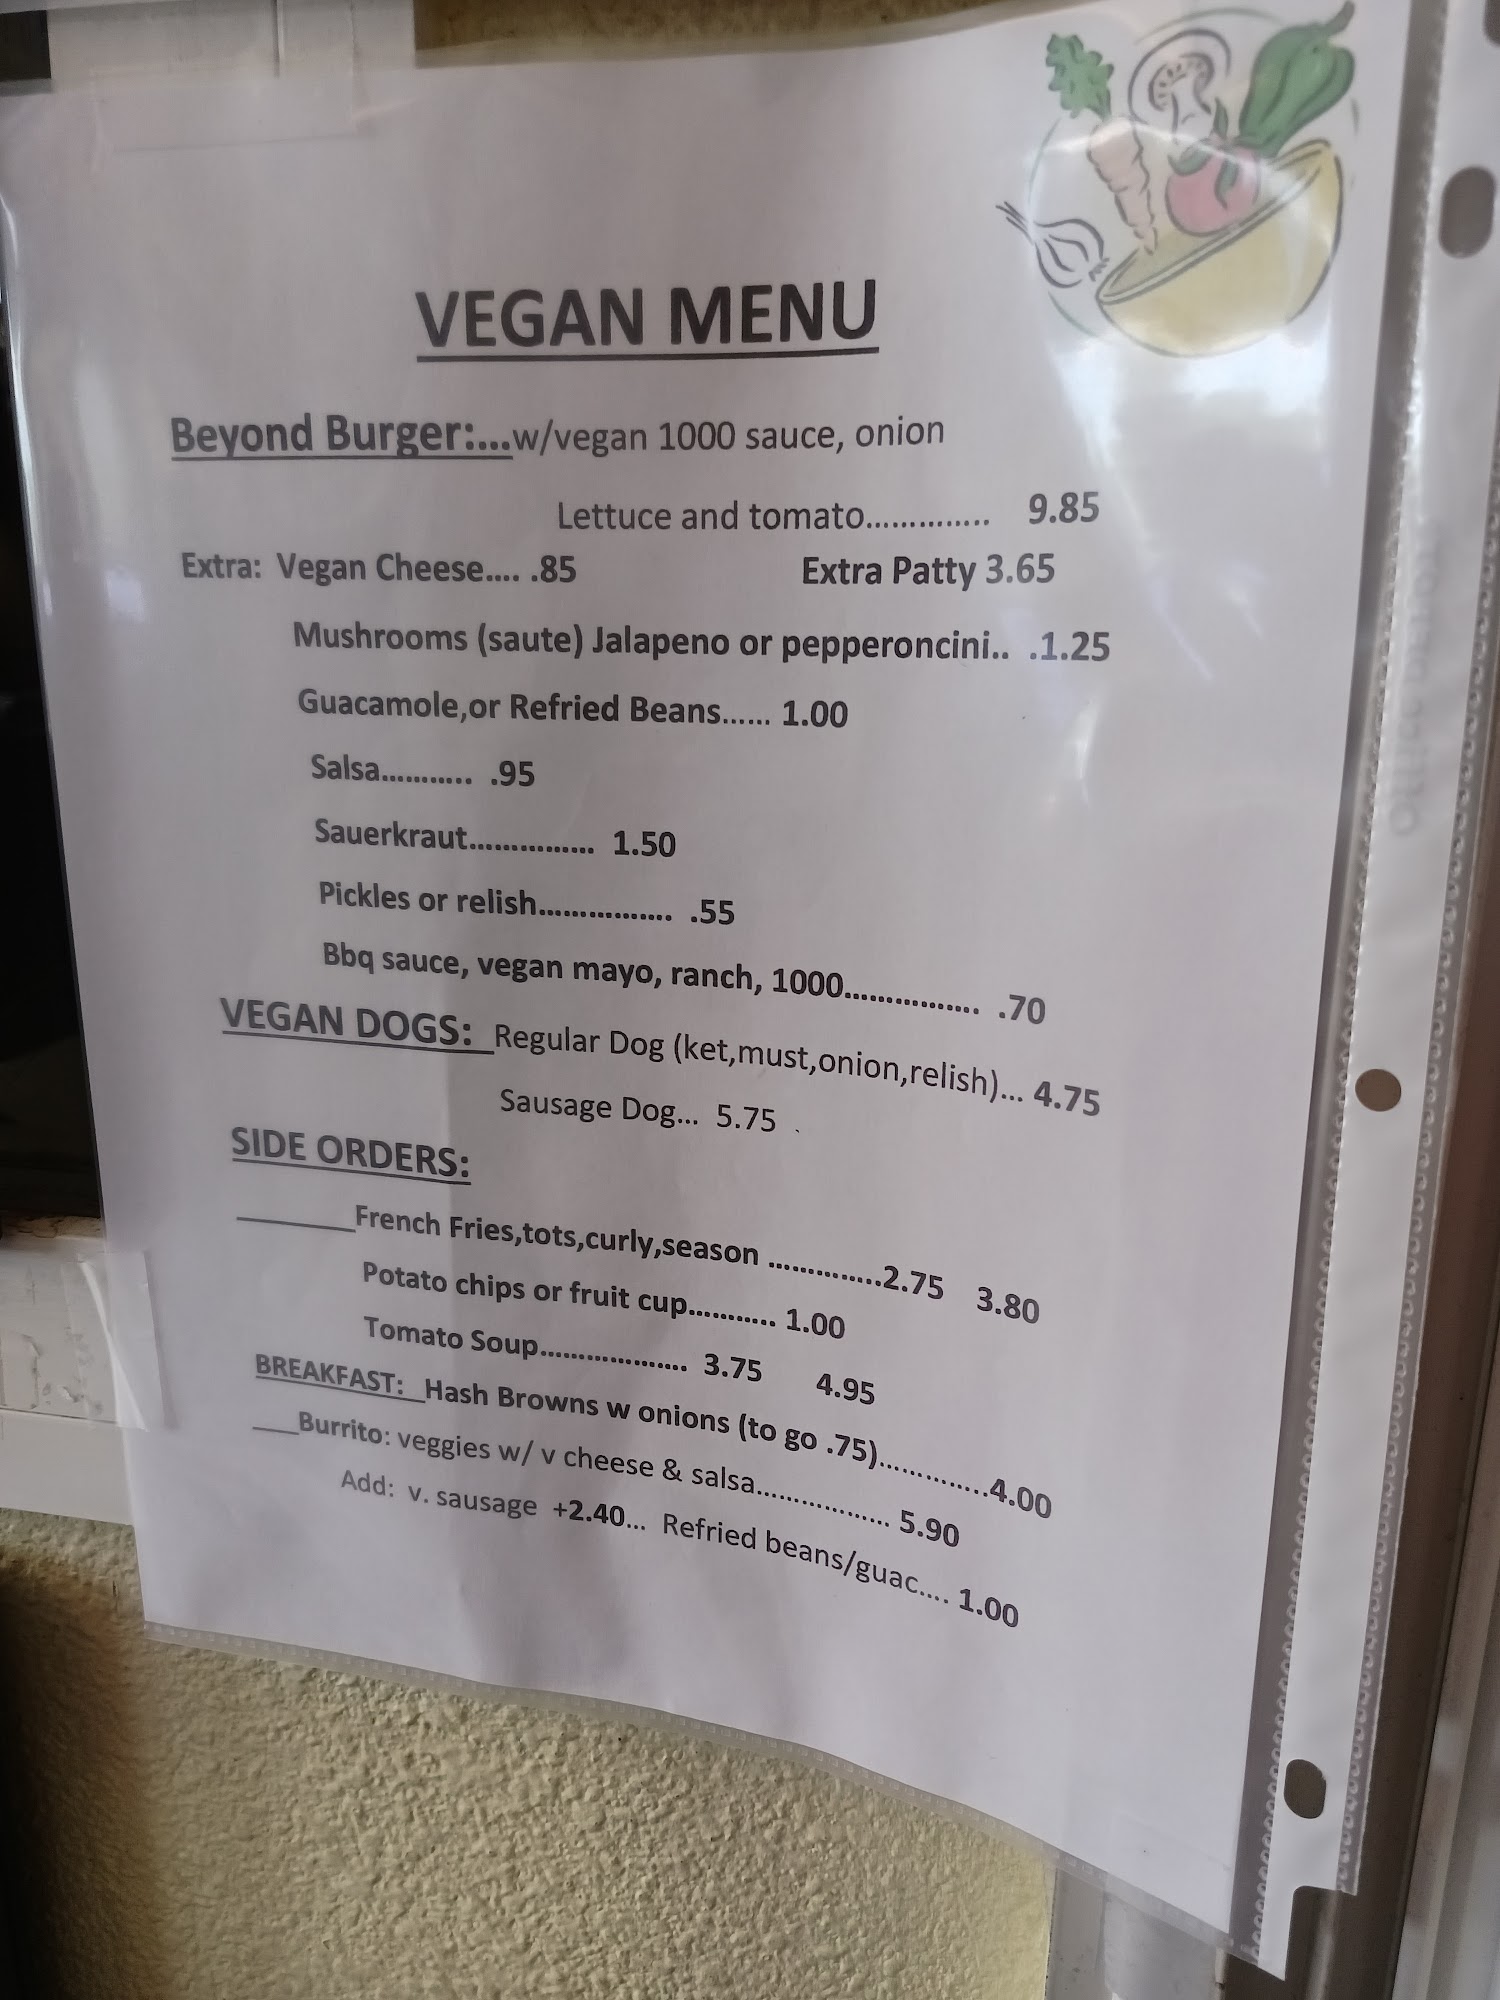 VEGAN MENU
Beyond Burger:...w/vegan 1000 sauce, onion
Lettuce and tomato.............. 9.85
Extra: Vegan Cheese.... .85 Extra Patty 3.65
Mushrooms (saute) Jalapeno or pepperoncini.. .1.25
Guacamole,or Refried Beans...... 1.00
Salsa........... .95
Sauerkraut................ 1.50
Pickles or relish................. .55
Bbq sauce, vegan mayo, ranch, 1000................. .70
VEGAN DOGS: Regular Dog (ket,must,onion,relish)... 4.75
Sausage Dog... 5.75 .
SIDE ORDERS:
French Fries,tots,curly,season ..............2.75 3.80
Potato chips or fruit cup........... 1.00
Tomato Soup................... 3.75 4.95
BREAKFAST: Hash Browns w onions (to go .75)..............4.00
Burrito: veggies w/ v cheese & salsa................. 5.90
Add: v. sausage +2.40... Refried beans/guac.... 1.00